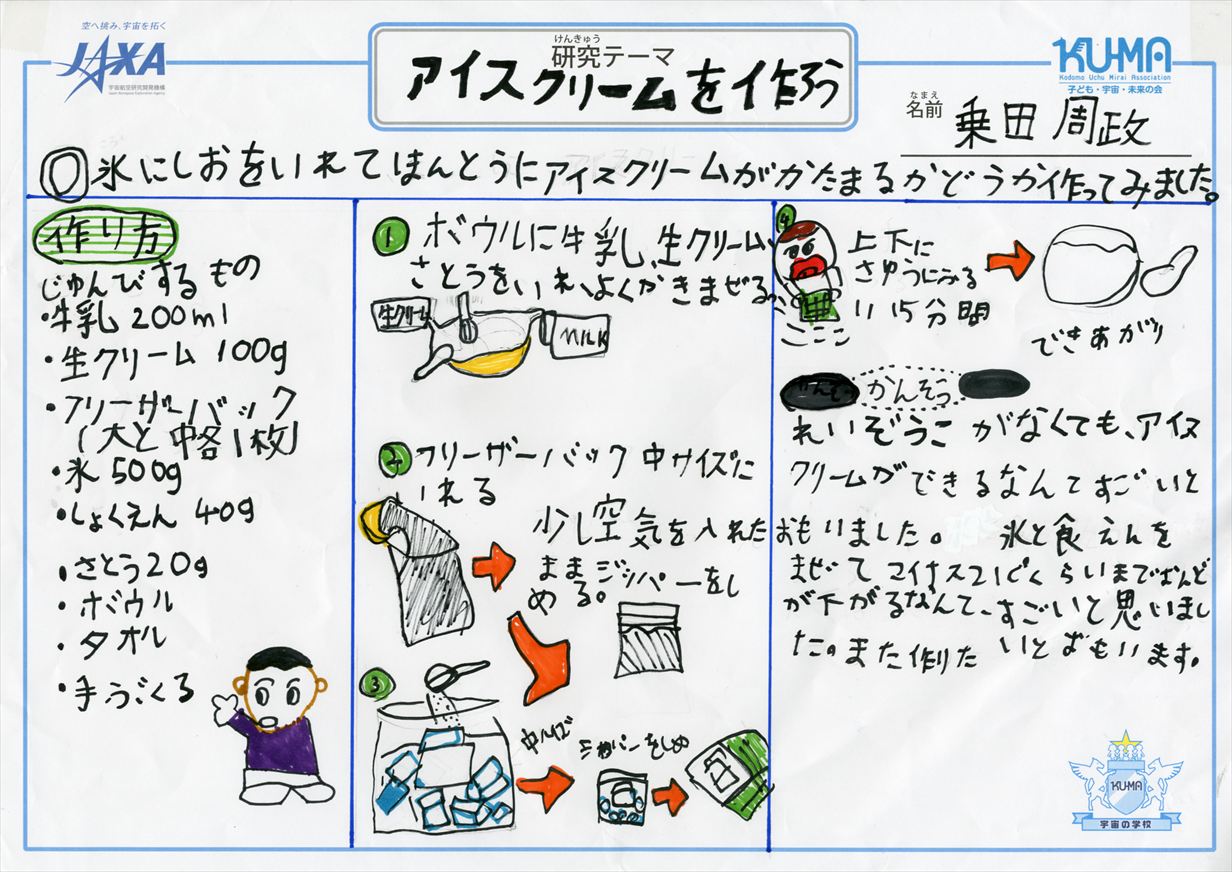 空へ挑み、宇宙を拓く
JAXA
宇宙航空研究開発機構
Japan Aerospace Exploration Agency
けんきゅう
研究テーマ
アイスクリームを作ろう
KU-MA
Kodomo Uchu Mirai Association
子ども・宇宙・未来の会
なまえ
名前
乗田 周政
◎氷にしおをいれてほんとうにアイスクリームがかたまるかどうか作ってみました。
作り方
じゅんびするもの
・牛乳 200ml
・生クリーム 100g
・フリーザーバック
(大と中各1枚)
・氷 500g
・しょくえん 40g
・さとう20g
・ボウル
・タオル
・手ぶくろ
1 ボウルに牛乳、生クリーム、
さとうをいれ、よくかきまぜる。
生クリーム
MILK
2 フリーザーバック中サイズに
いれる
少し空気を入れた
ままジッパーをし
める。
3
ジッパーをしめ
4
上下に
さゆうにふる
15分間
できあがり
かんそう
れいぞうこがなくても、アイス
クリームができるなんてすごいと
おもいました。 氷と食えんを
まぜてマイナス21どくらいまでおんど
が下がるなんて、すごいと思いまし
た。また作りたいとおもいます。
KU-MA
宇宙の学校